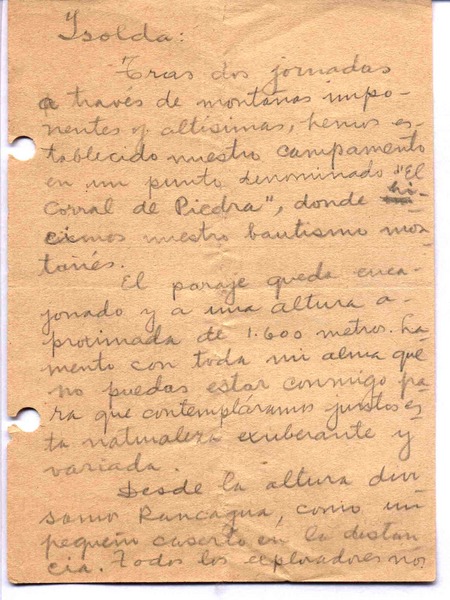 Isolda:
Tras dos jornadas
a través de montañas impo-
nentes y altísimas, hemos es-
tablecido nuestro campamento
en un punto denominado "El
Corral de Piedra", donde hi-
cimos nuestro bautismo mon-
tañés.
El paraje queda enca-
jonado y a una altura a-
proximada de 1.600 metros. La-
mento con toda mi alma que
no puedas estar conmigo pa-
ra que contempláramos juntos es-
ta naturaleza exuberante y
variada.
Desde la altura divi
samos Rancagua, como un
pequeño caserío en la distan
cia. Todos los exploradores nos